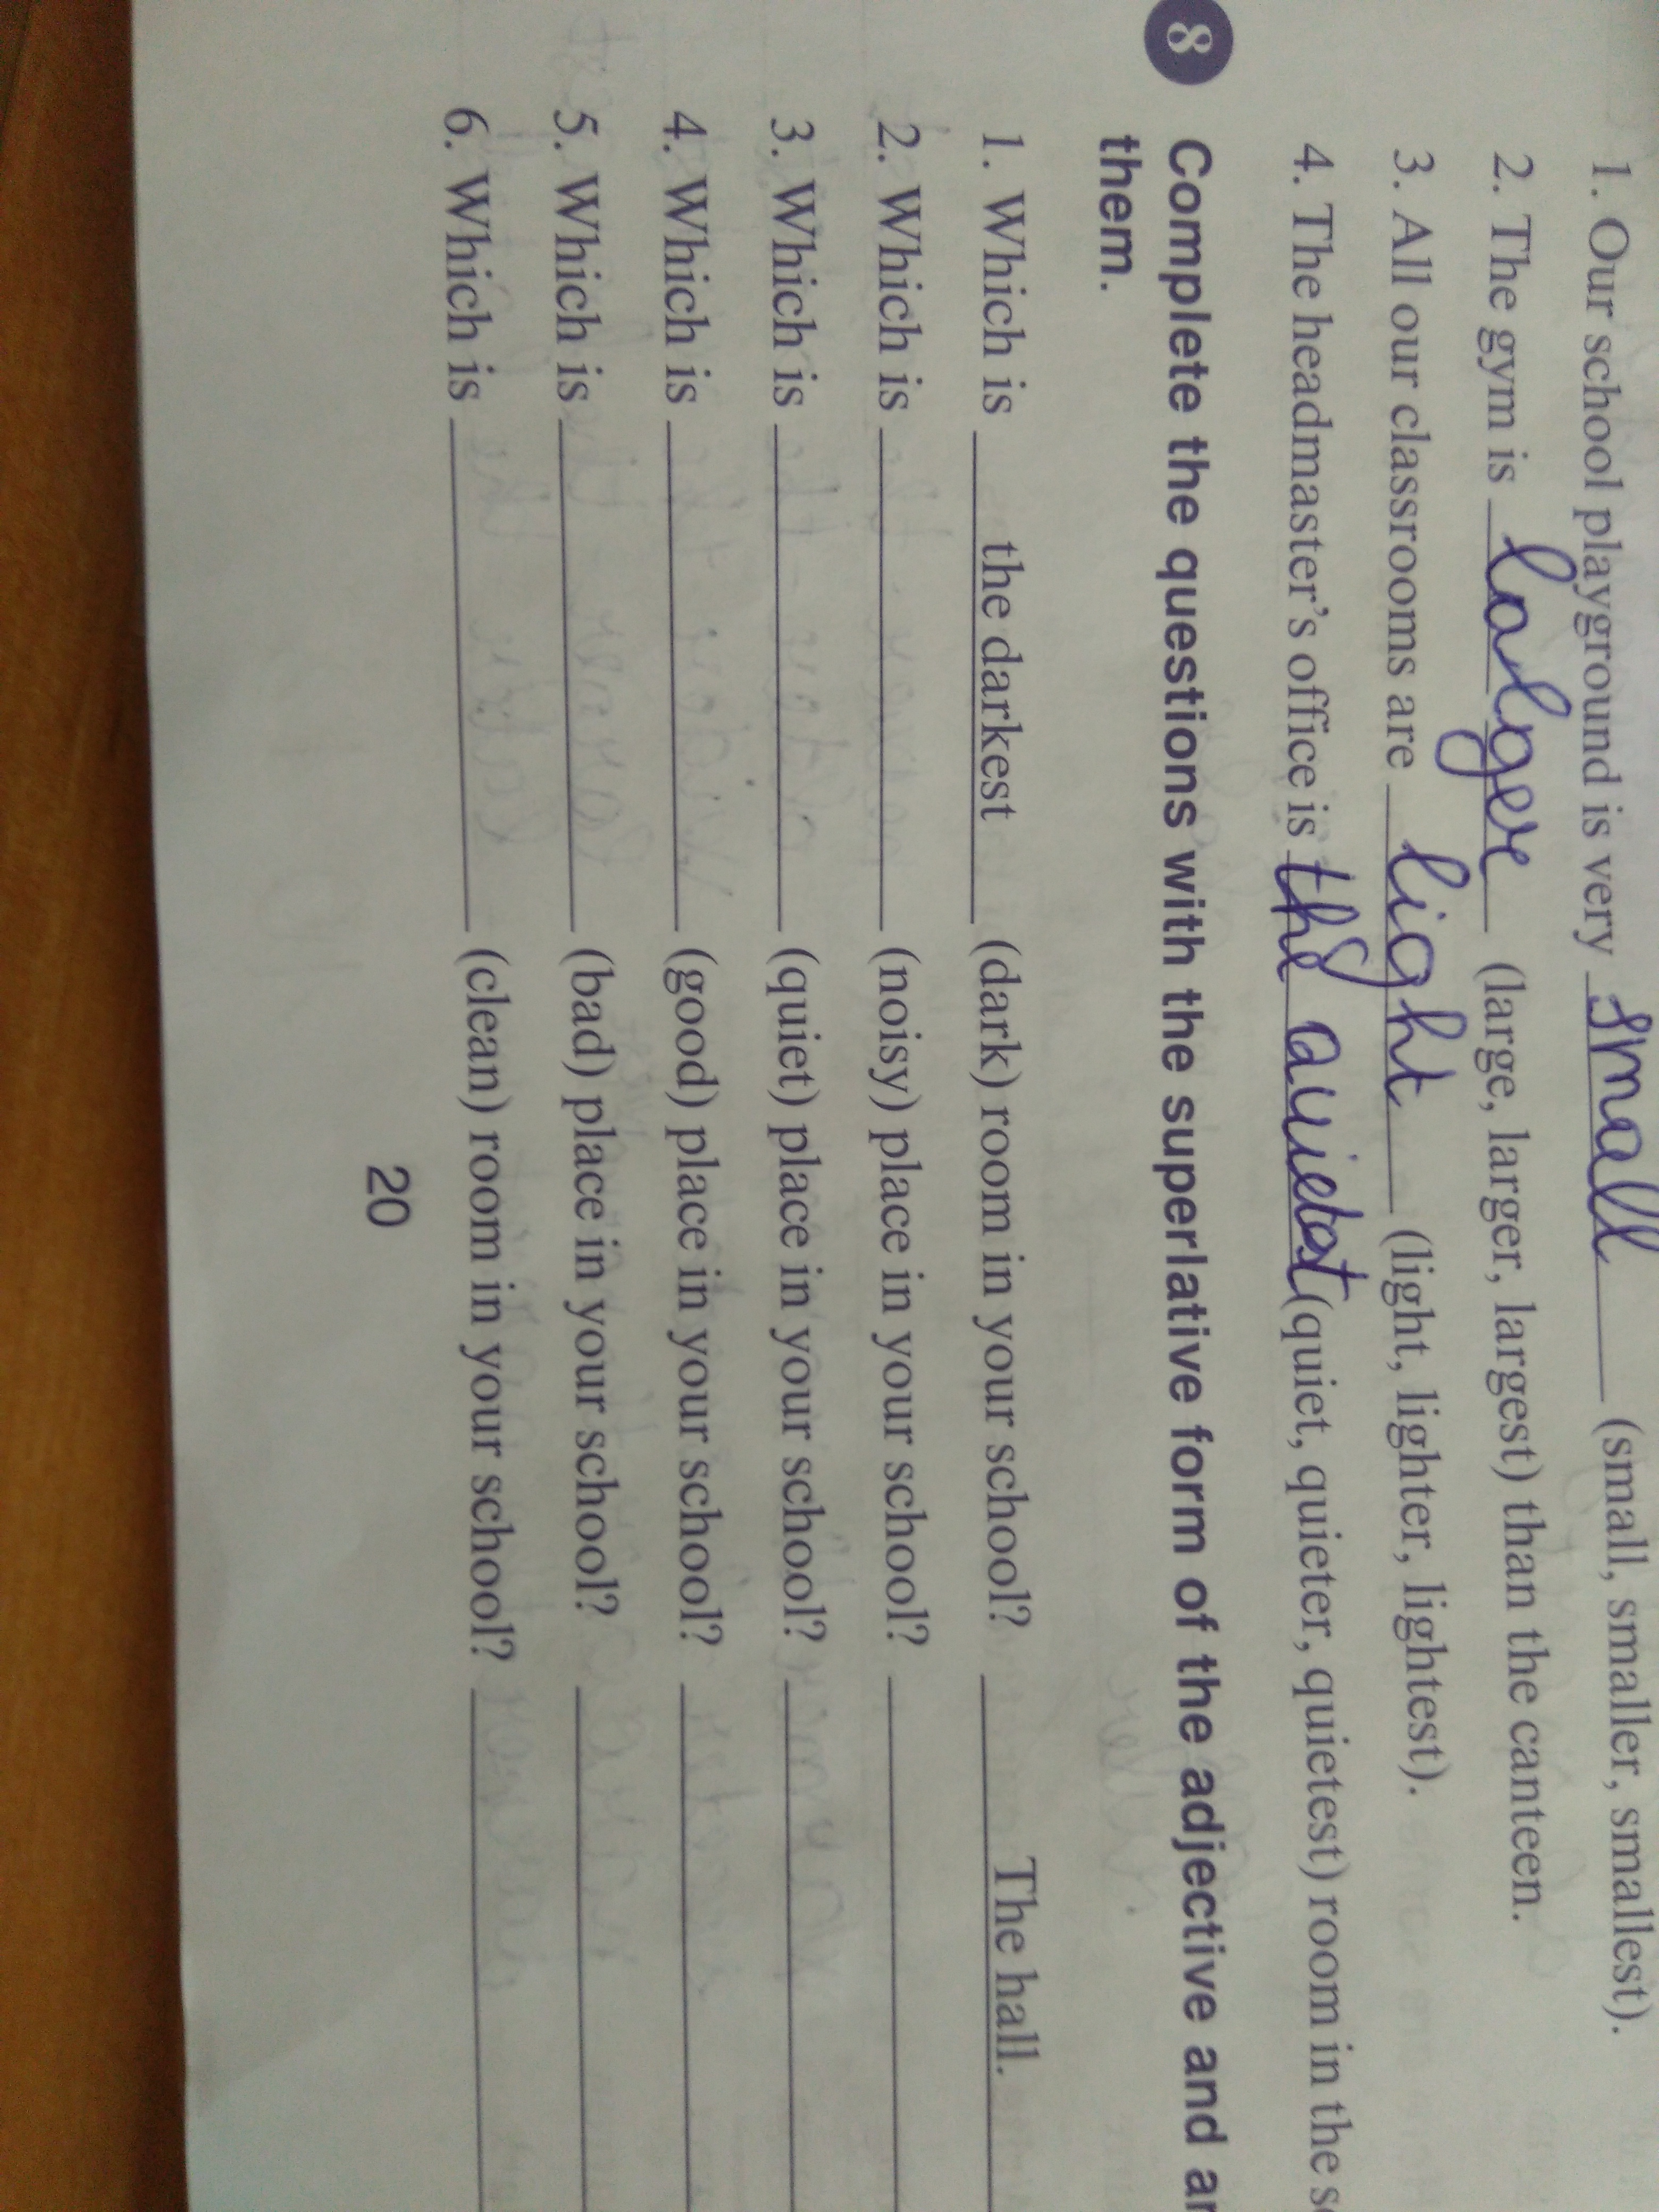 1. Our school playground is very small (small, smaller, smallest).
2. The gym is lalger (large, larger, largest) than the canteen.
3. All our classrooms are light (light, lighter, lightest).
4. The headmaster's office is the quietest (quiet, quieter, quietest) room in the
8 Complete the questions with the superlative form of the adjective and
them.
1. Which is the darkest (dark) room in your school? The hall.
2. Which is (noisy) place in your school?
3. Which is (quiet) place in your school?
4. Which is (good) place in your school?
5. Which is (bad) place in your school?
6. Which is (clean) room in your school?
20